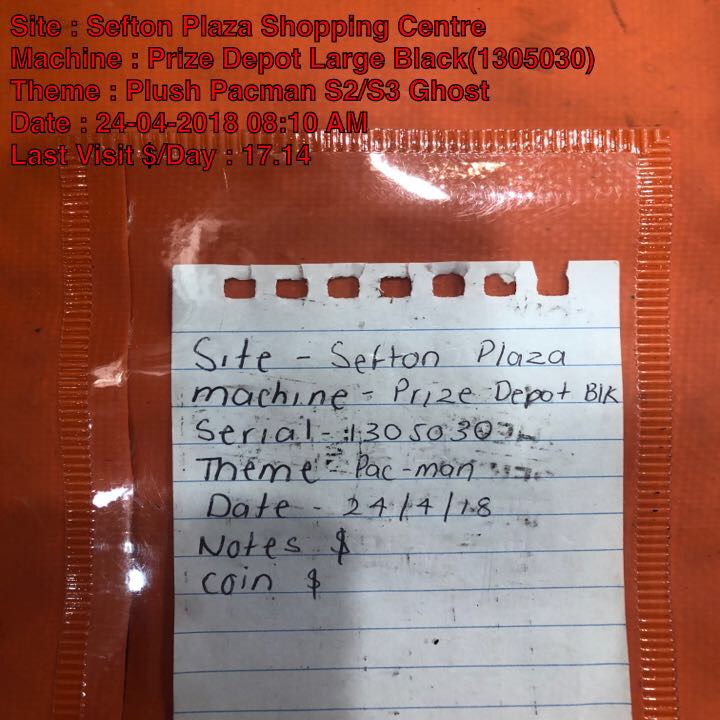 Site : Sefton Plaza Shopping Centre
Machine : Prize Depot Large Black(1305030)
Theme : Plush Pacman S2/S3 Ghost
Date : 24-04-2018 08:10 AM
Last Visit $/Day : 17.14
Site - Sefton Plaza
machine - Prize Depot Blk
Serial - 1305030
Theme - Pac-man
Date - 24/4/18
Notes $
coin $